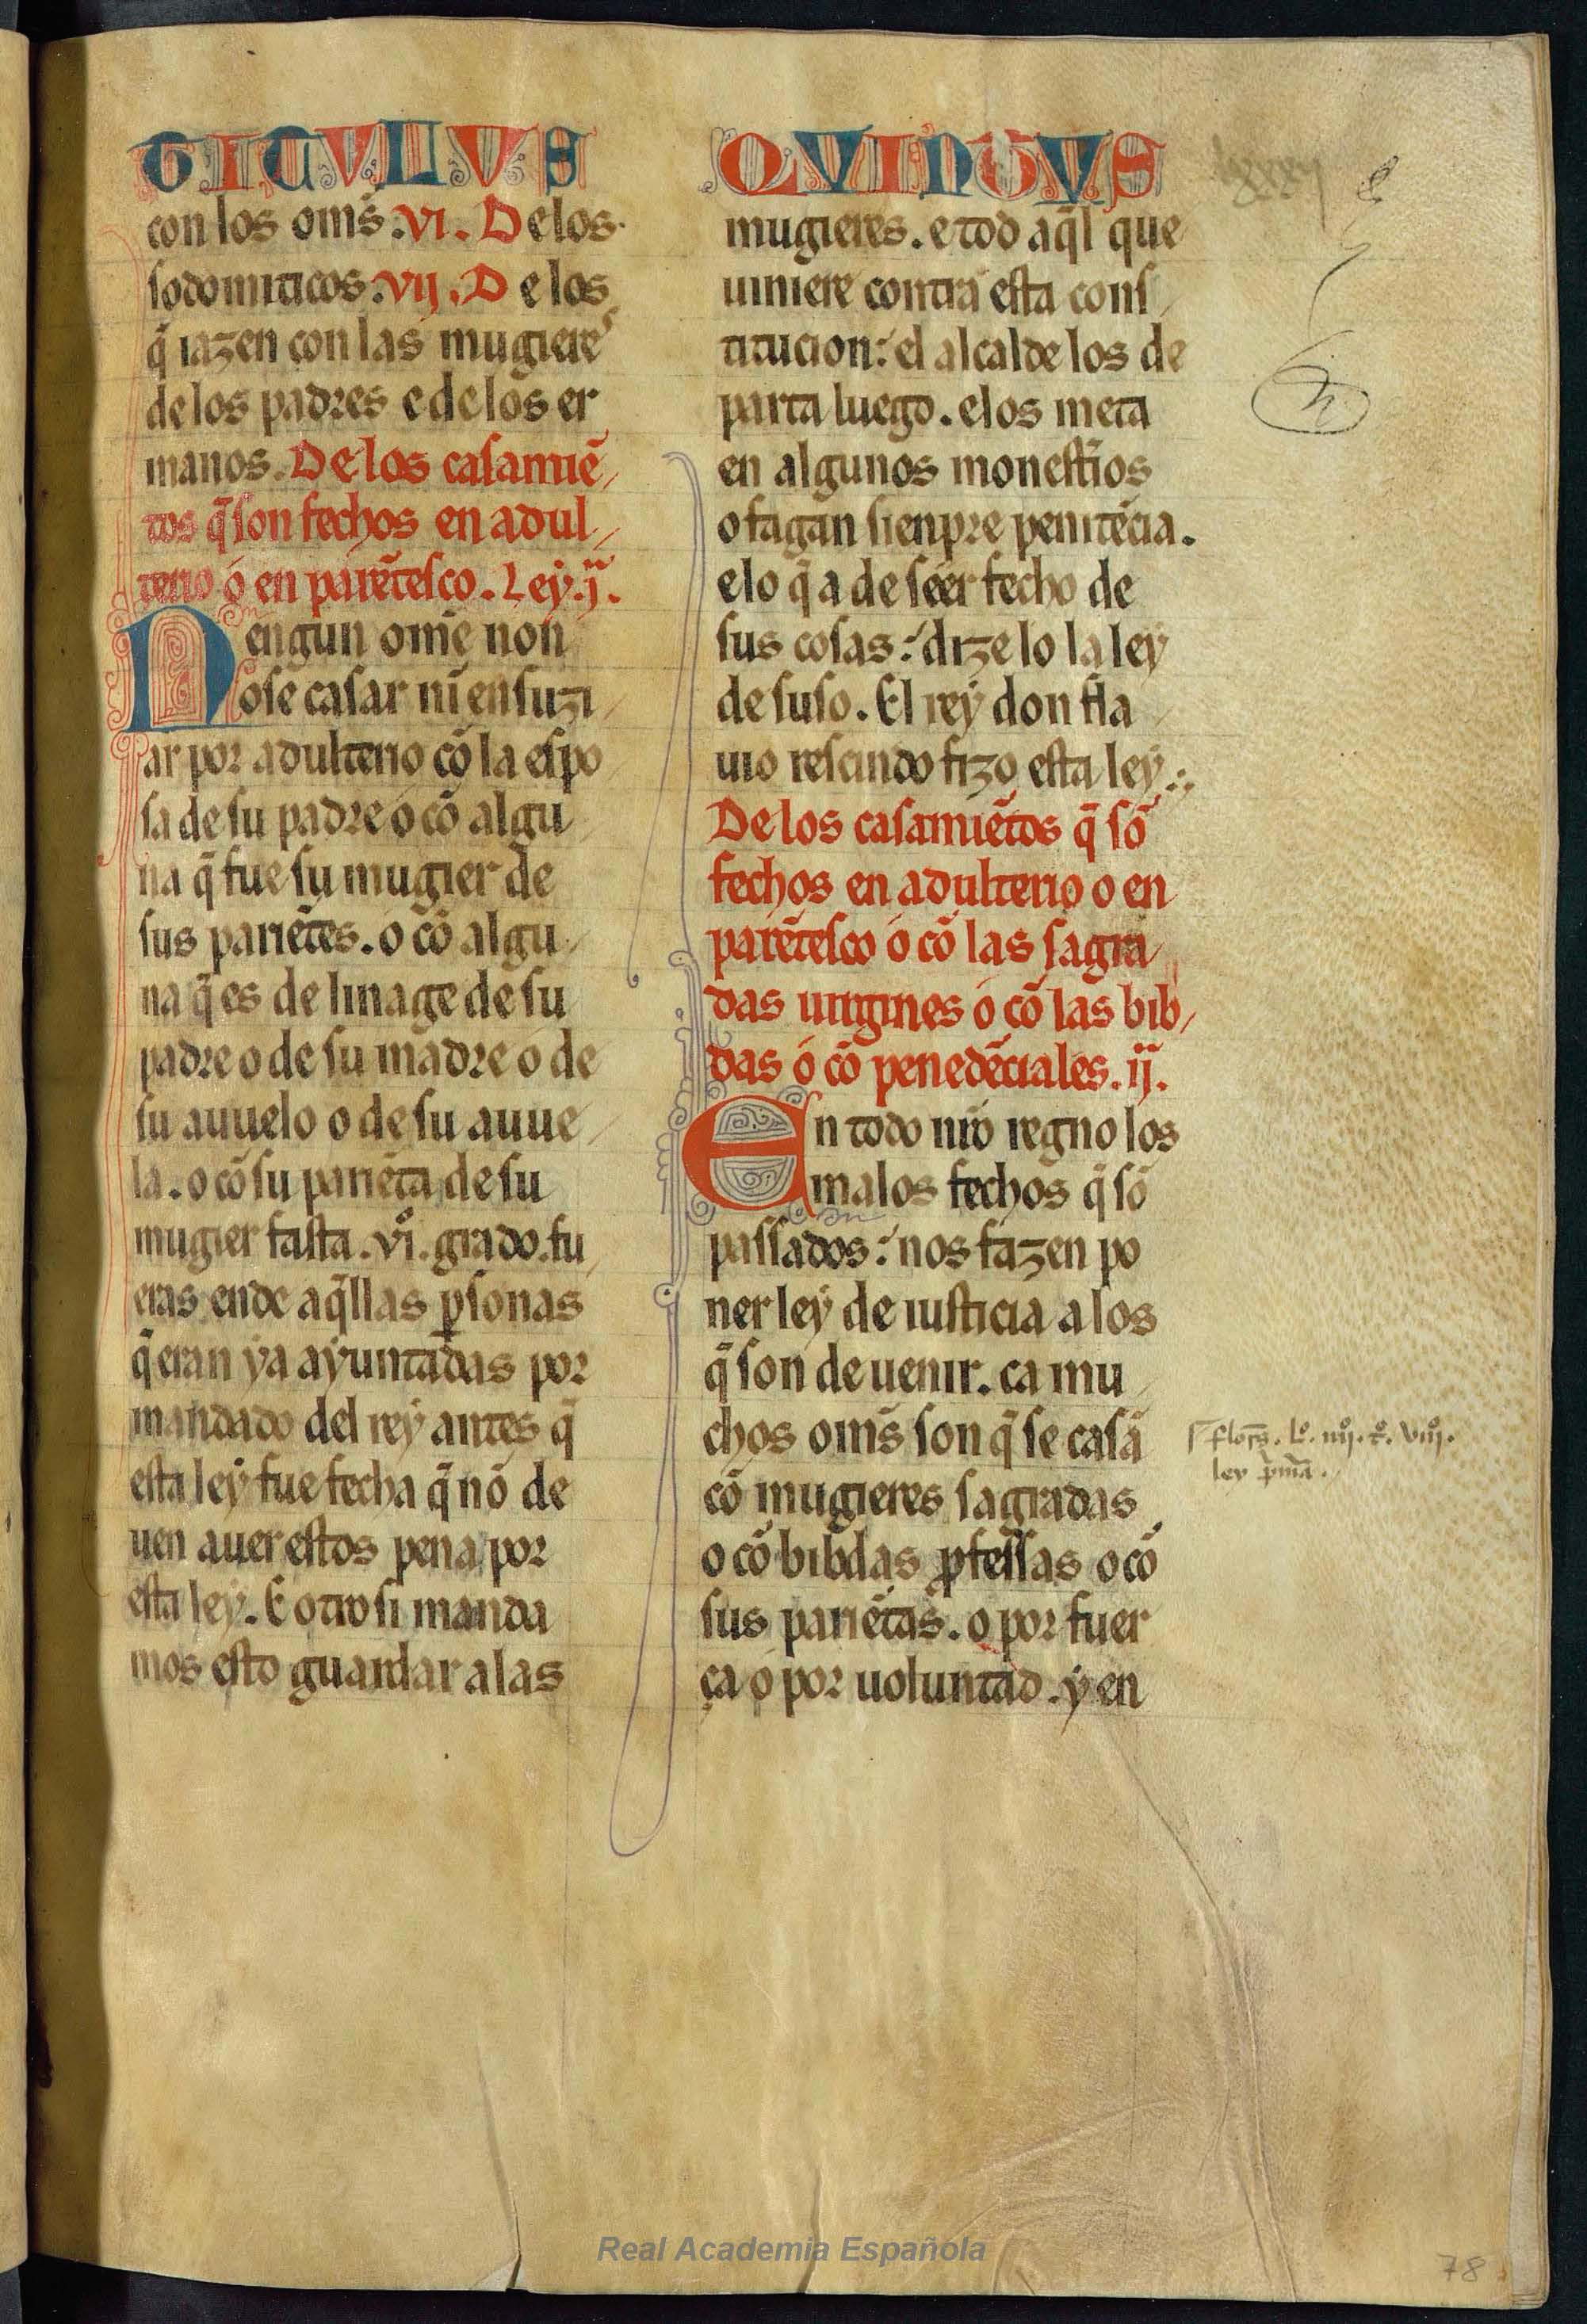 TITULUS
con los om̄s .vi. De los
sodomiticos .vij. De los
q̄ iazen con las mugieres
de los padres e de los er
manos. De los casamiē
tos q̄ son fechos en adul
terio o en parētesco. Ley .j.
Nengun om̄e non
ose casar nī ensuzi
ar por adulterio cō la espo
sa de su padre o cō algu
na q̄ fue su mugier de
sus pariētes. o cō algu
na q̄ es de linage de su
padre o de su madre o de
su auuelo o de su auue
la. o cō su pariēta de su
mugier fasta .viº. grado. fu
eras ende aq̄llas ꝑsonas
q̄ eran ya ayuntadas por
mandado del rey antes q̄
esta ley fue fecha q̄ nō de
uen auer estos pena por
esta ley. E otrosi manda
mos esto guardar a las
QUINTUS
mugieres. e tod aq̄l que
uiniere contra esta cons
titucion: el alcalde los de
parta luego. e los meta
en algunos monest̄ios
o fagan sienpre penitēcia.
e lo q̄ a de seer fecho de
sus cosas: dize lo la ley
de suso. El rey don fla
uio rescindo fizo esta ley.
De los casamiētos q̄ sō
fechos en adulterio o en
parētesco o cō las sagra
das uirgines o cō las bib
das o cō penedēciales. ij.
En todo nr̄o regno los
malos fechos q̄ sō
passados: nos fazen po
ner ley de iusticia a los
q̄ son de uenir. ca mu
chos om̄s son q̄ se casā
cō mugieres sagradas
o cō bibdas ꝓfessas o cō
sus pariētas. o por fuer
ça o por uoluntad. y en
lº. iiijº. tº. viijº.
ley p̄ma.
Real Academia Española
78